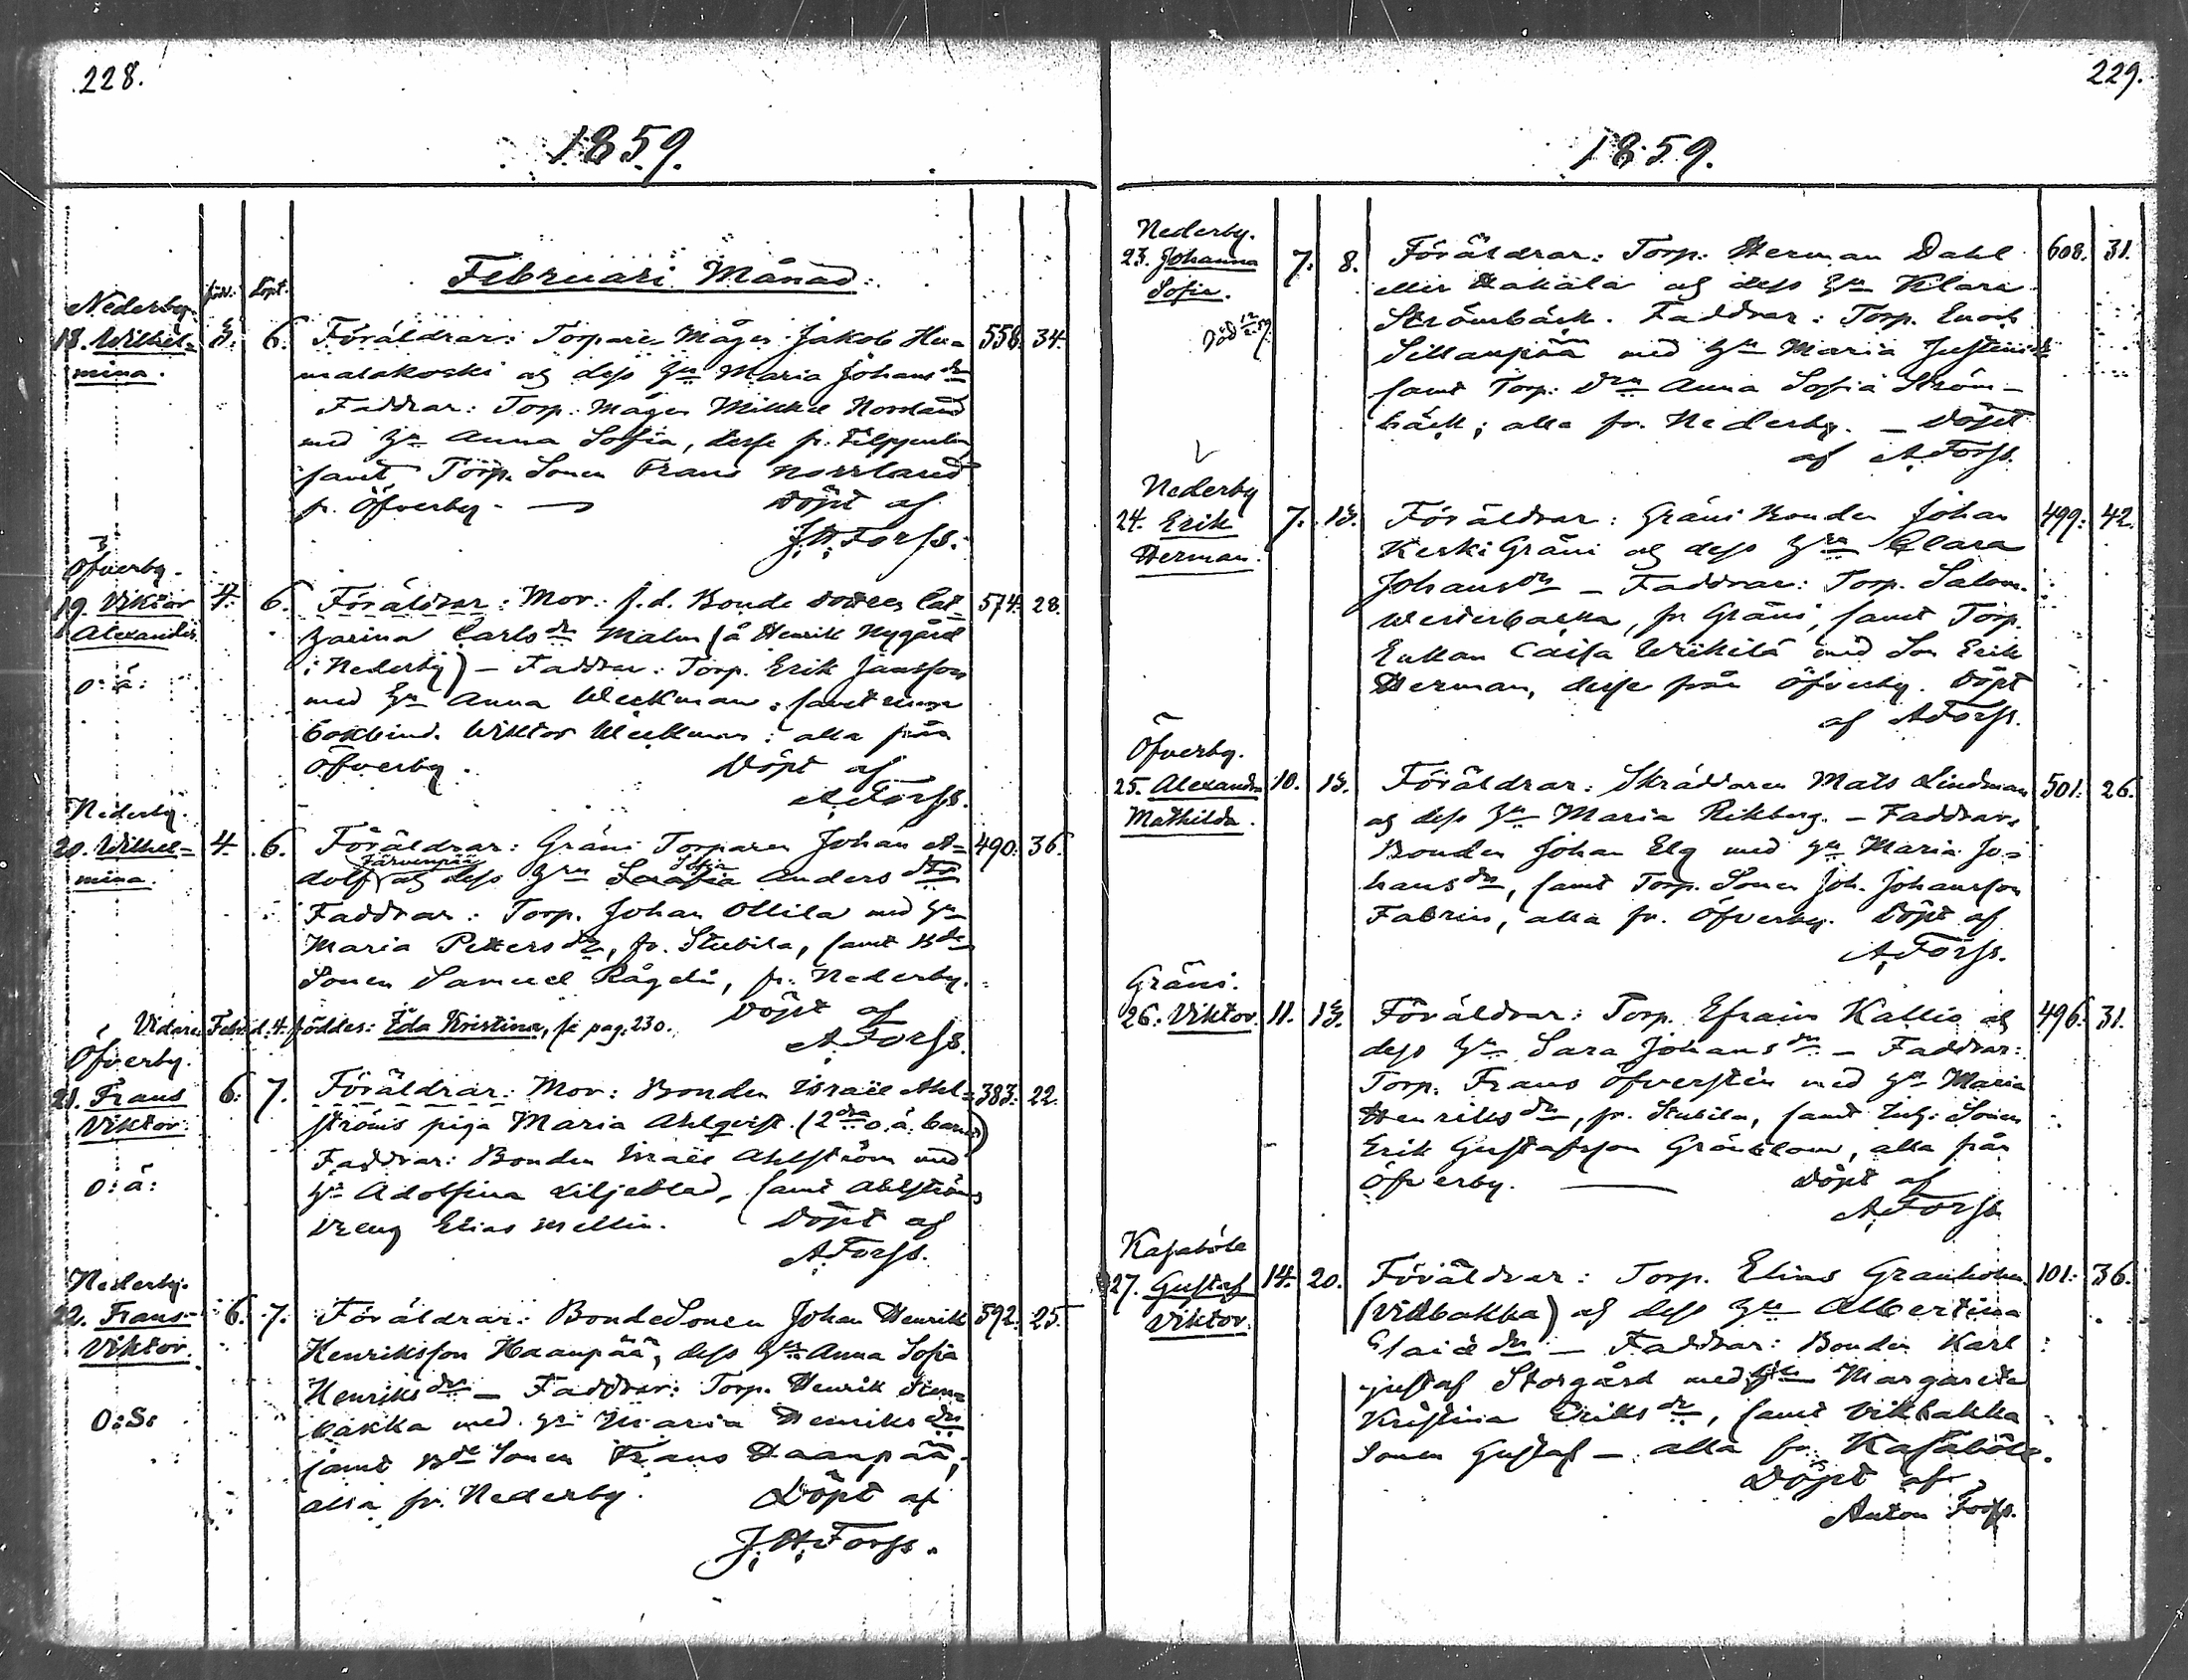 228.
1859.
Februari Månad:
född: döpt.
Nederby.
18. Wilhel=
mina.
3. 6. Föräldrar: Torpare Mågen Jakob Hu=
malakoski och dess h:u Maria Johans dr
Faddrar: Torp. Mågen Mikkel Norrland
med h:u Anna Sofia, desse fr.
samt Torp. Sonen Frans Norrland
fr. Öfverby. — Döpt af
J. H. Forss.
558. 34.
Öfverby.
19. Viktor
Alexander.
o: ä:
4. 6. Föräldrar: Mor: f.d. Bonde dotren Cat=
harina Carls dr Malm (å Henrik Nygård
i Nederby) — Faddrar: Torp. Erik Jansson
med h:u Anna Weckman, samt
bokbind. Wiktor Weckman; alla från
Öfverby. Döpt af
A. Forss.
574. 28.
Nederby.
20. Wilhel=
mina.
4. 6. Föräldrar: Gräni Torparen Johan A=
dolf Järvenpää och dess h:ru Anders dr
Faddrar: Torp. Johan Ollila med h:u
Maria Petters dr, fr. Stubila, samt B:de
Sonen Samuel Rågeli, fr. Nederby.
Döpt af
A. Forss.
490. 36.
Vidare Febr. d. 4. föddes: Ida Kristina, se pag. 230.
Öfverby.
21. Frans
Viktor.
o: ä:
6. 7. Föräldrar: Mor: Bonden Israel Ahl=
ströms piga Maria Ahlqvist. (2:dra o.ä. barnet)
Faddrar: Bonden Israel Ahlström med
h:u Adolfina Liljeblad, samt Ahlströms
dreng Elias Mellin. Döpt af
A. Forss.
383. 22.
Nederby.
22. Frans
Viktor.
o: S:
6. 7. Föräldrar: BondeSonen Johan Henrik
Henriksson Haanpää, dess h:u Anna Sofia
Henriks dr — Faddrar: Torp. Henrik Sten=
bakka med h:u Maria Henriks dr
samt B:de Sonen Frans Haanpää,
alla fr. Nederby. Döpt af
J. H. Forss.
592. 25.
229.
1859.
Nederby.
23. Johanna
Sofia.
Död 12/2 59.
7. 8. Föräldrar: Torp. Herman Dahl
eller Hakala och dess h:u Klara
Strömbäck. Faddrar: Torp. Enoch
Sillanpää med h:u Maria Justina
samt Torp: d:ren Anna Sofia Ström=
bäck; alla fr. Nederby. — Döpt
af A. Forss.
608. 31.
Nederby
24. Erik
Herman.
7. 13. Föräldrar: Gräni Bonden Johan
KeskiGräni och dess h:ru Clara
Johans dr — Faddrar: Torp. Salom.
Westerbacka, fr Gräni, samt Torp.
Enkan Caisa Wiikilä med Son Erik
Herman, desse från Öfverby. Döpt
af A. Forss.
499. 42.
Öfverby.
25. Alexandra
Mathilda.
10. 13. Föräldrar: Skräddaren Mats Lindman
och dess h:u Maria Rikberg. — Faddrar,
Bonden Johan Elg med h:u Maria Jo=
hans dr, samt Torp. Sonen Joh. Johansson
Fabrin, alla fr. Öfverby. Döpt af
A. Forss.
501. 26.
Gräni.
26. Viktor.
11. 13. Föräldrar: Torp. Efraim Kallio och
dess h:u Sara Johans dr — Faddrar:
Torp. Frans Öfversten med h:u Maria
Henriks dr, fr. Stubila, samt Sonen
Erik Gustafsson Grönblom, alla från
Öfverby. — Döpt af
A. Forss
496. 31.
Kasaböle
27. Gustaf
Viktor.
14. 20. Föräldrar: Torp. Elias Granholm
(Vikbakka) och dess h:u Albertina
— Faddrar: Bonden Karl
Gustaf Storgård med Margareta
Kristina Eriks dr, samt Vikbakka
Sonen Gustaf — alla fr. Kasaböle.
Döpt af
Anton Forss.
101. 36.